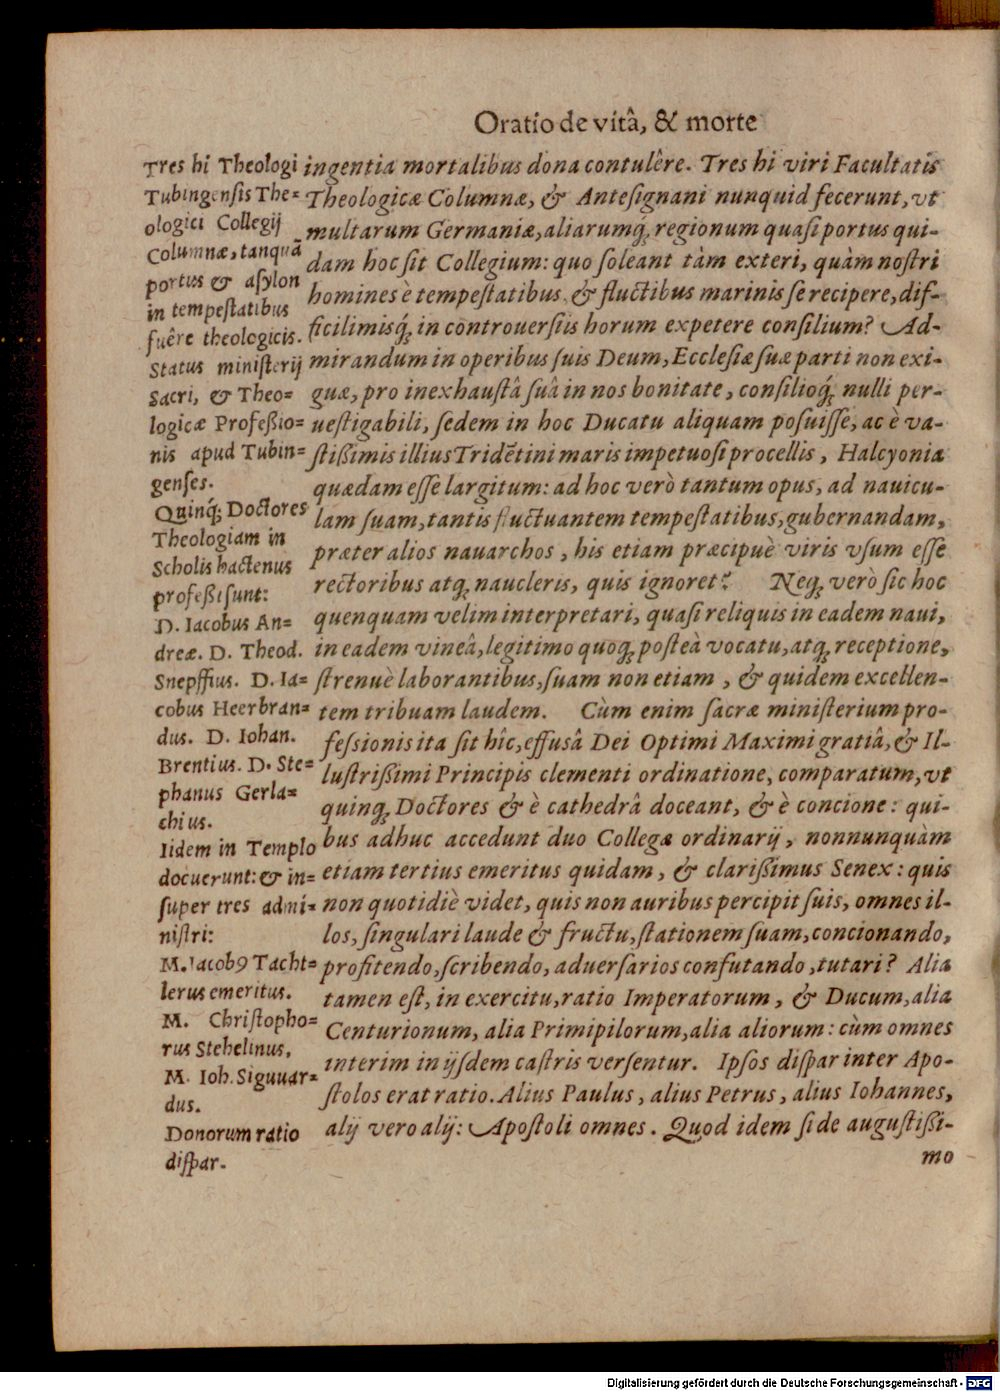 Oratio de vitâ, & morte
Tres hi Theologi
Tubingensis The=
ologici Collegij
Columnæ, tanquã
portus & asylon
in tempestatibus
fuêre theologicis.
Status ministerij
Sacri, & Theo=
logicæ Profeßio=
nis apud Tubin=
genses.
Quinq́; Doctores
Theologiam in
Scholis hactenus
profeßi sunt:
D. Iacobus An=
dreæ. D. Theod.
Snepffius. D. Ia=
cobus Heerbran=
dus. D. Iohan.
Brentius. D. Ste=
phanus Gerla=
chius.
Iidem in Templo
docuerunt: & in=
super tres admi=
nistri:
M. Iacob9 Tacht=
lerus emeritus.
M. Christopho=
rus Stehelinus.
M. Ioh. Siguuar=
dus.
Donorum ratio
dispar.
ingentia mortalibus dona contulêre. Tres hi viri Facultatis
Theologicæ Columnæ, & Antesignani nunquid fecerunt, vt
multarum Germaniæ, aliarumq; regionum quasi portus qui-
dam hoc sit Collegium: quo soleant tàm exteri, quàm nostri
homines è tempestatibus & fluctibus marinis se recipere, dif-
ficilimisq́; in controuersiis horum expetere consilium? Ad-
mirandum in operibus suis Deum, Ecclesiæ suæ parti non exi-
guæ, pro inexhaustâ suâ in nos bonitate, consilioq́; nulli per-
uestigabili, sedem in hoc Ducatu aliquam posuisse, ac è va-
stißimis illius Tridẽtini maris impetuosi procellis, Halcyonia
quædam esse largitum: ad hoc verò tantum opus, ad nauicu-
lam suam, tantis fluctuantem tempestatibus, gubernandam,
præter alios nauarchos, his etiam præcipuè viris vsum esse
rectoribus atq; naucleris, quis ignoret? Neq; verò sic hoc
quenquam velim interpretari, quasi reliquis in eadem naui,
in eadem vineâ, legitimo quoq; posteà vocatu, atq; receptione,
strenuè laborantibus, suam non etiam, & quidem excellen-
tem tribuam laudem. Cùm enim sacræ ministerium pro-
fessionis ita sit hîc, effusâ Dei Optimi Maximi gratiâ, & Il-
lustrißimi Principis clementi ordinatione, comparatum, vt
quinq; Doctores & è cathedrâ doceant, & è concione: qui-
bus adhuc accedunt duo Collegæ ordinarij, nonnunquàm
etiam tertius emeritus quidam, & clarißimus Senex: quis
non quotidiè videt, quis non auribus percipit suis, omnes il-
los, singulari laude & fructu, stationem suam, concionando,
profitendo, scribendo, aduersarios confutando, tutari? Alia
tamen est, in exercitu, ratio Imperatorum, & Ducum, alia
Centurionum, alia Primipilorum, alia aliorum: cùm omnes
interim in ijsdem castris versentur. Ipsos dispar inter Apo-
stolos erat ratio. Alius Paulus, alius Petrus, alius Iohannes,
alij vero alij: Apostoli omnes. Quod idem si de augustißi-
mo
Digitalisierung gefördert durch die Deutsche Forschungsgemeinschaft - DFG